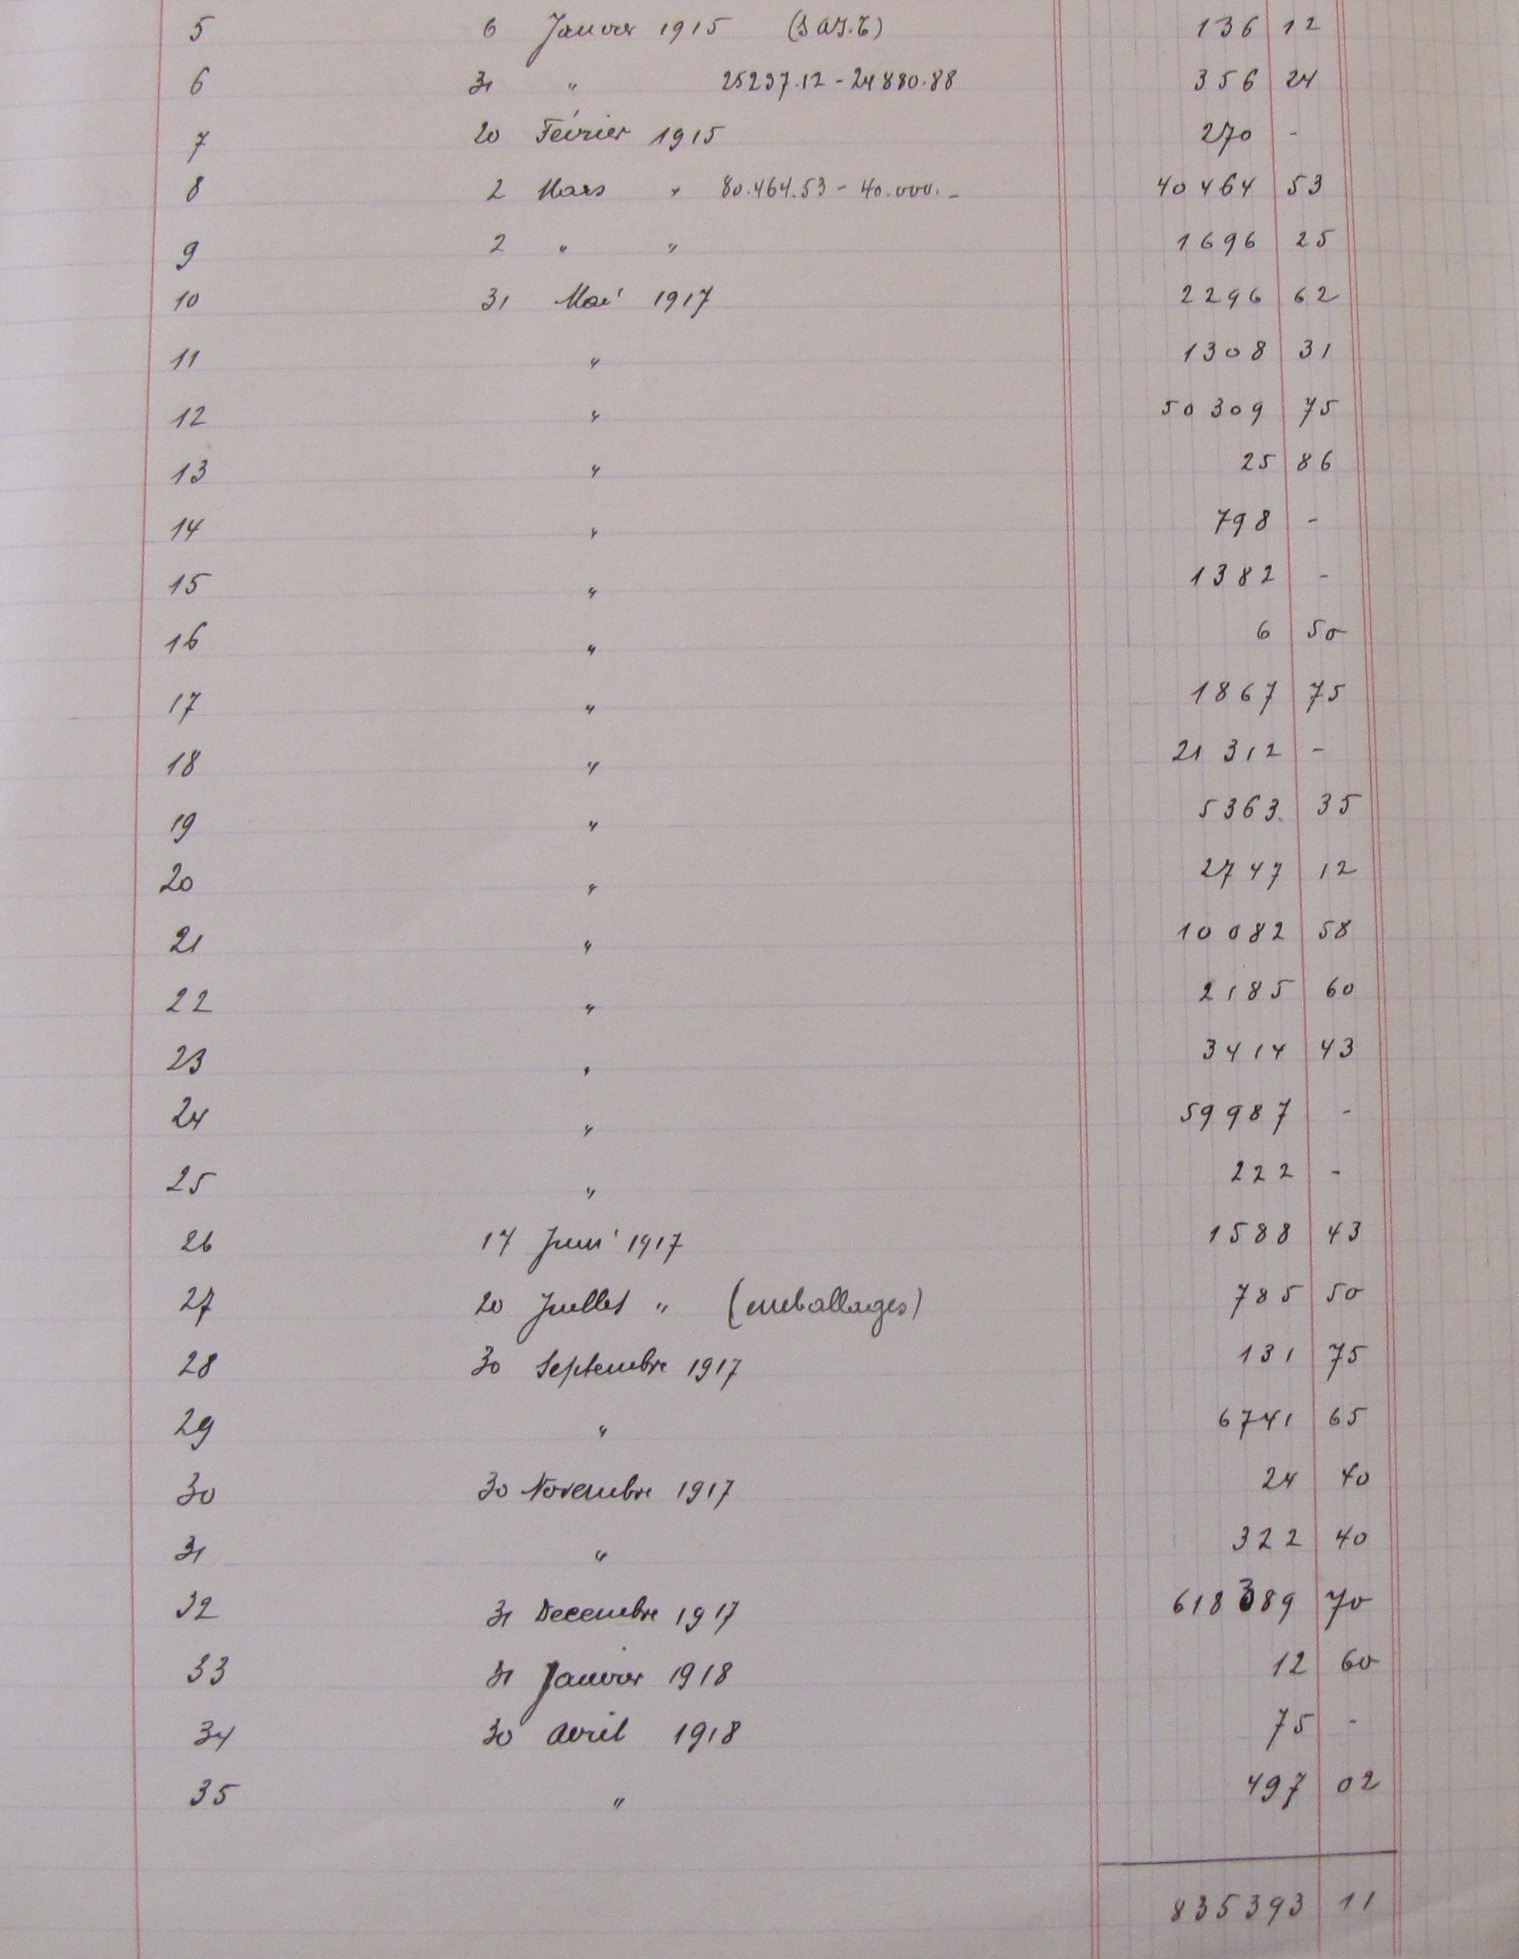 5 6 Janvier 1915 136 12
6 31 " 25237.12 - 24880.88 356 24
7 20 Février 1915 270 -
8 2 Mars " 80.464.53 - 40.000.- 40464 53
9 2 " " 1696 25
10 31 Mai 1917 2296 62
11 " 1308 31
12 " 50309 75
13 " 25 86
14 " 798 -
15 " 1382 -
16 " 6 50
17 " 1867 75
18 " 21312 -
19 " 5363. 35
20 " 2747 12
21 " 10082 58
22 " 2185 60
23 " 3414 43
24 " 59987 -
25 " 222 -
26 14 Juin 1917 1588 43
27 20 Juillet " (emballages) 785 50
28 30 Septembre 1917 131 75
29 " 6741 65
30 30 Novembre 1917 24 40
31 " 322 40
32 31 Decembre 1917 618389 70
33 31 Janvier 1918 12 60
34 30 Avril 1918 75 -
35 " 497 02
835393 11